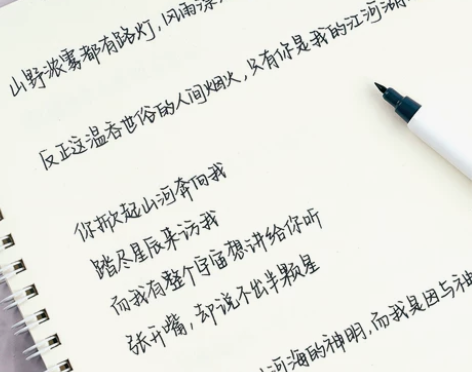 山野浓雾都有路灯,风雨漂
反正这温吞世俗的人间烟火,只有你是我的江河湖
你掀起山河奔向我
踏尽星辰来访我
而我有整个宇宙想讲给你听
张开嘴,却说不出半颗星
河海的神明,而我是因与神